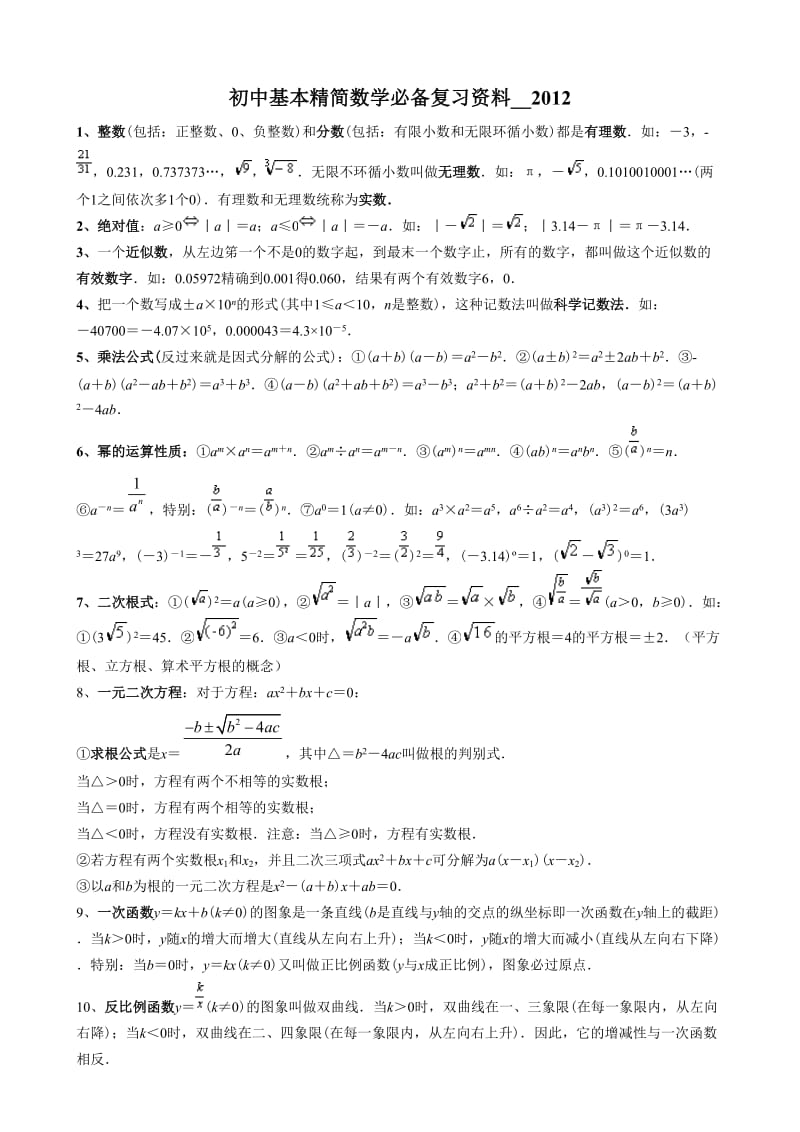 初中基本精简数学必备复习资料__2012
1、整数(包括：正整数、0、负整数)和分数(包括：有限小数和无限环循小数)都是有理数．如：－3，-
21/31，0.231，0.737373…，√9，∛-8．无限不环循小数叫做无理数．如：π，－√5，0.1010010001…(两
个1之间依次多1个0)．有理数和无理数统称为实数．
2、绝对值：a≥0⇔丨a丨＝a；a≤0⇔丨a丨＝－a．如：丨－√2丨＝√2；丨3.14－π丨＝π－3.14．
3、一个近似数，从左边笫一个不是0的数字起，到最末一个数字止，所有的数字，都叫做这个近似数的
有效数字．如：0.05972精确到0.001得0.060，结果有两个有效数字6，0．
4、把一个数写成±a×10ⁿ的形式(其中1≤a＜10，n是整数)，这种记数法叫做科学记数法．如：
－40700＝－4.07×10⁵，0.000043＝4.3×10⁻⁵．
5、乘法公式(反过来就是因式分解的公式)：①(a＋b)(a－b)＝a²－b²．②(a±b)²＝a²±2ab＋b²．③-
(a＋b)(a²－ab＋b²)＝a³＋b³．④(a－b)(a²＋ab＋b²)＝a³－b³；a²＋b²＝(a＋b)²－2ab，(a－b)²＝(a＋b)
²－4ab．
6、幂的运算性质：①aᵐ×aⁿ＝aᵐ⁺ⁿ．②aᵐ÷aⁿ＝aᵐ⁻ⁿ．③(aᵐ)ⁿ＝aᵐⁿ．④(ab)ⁿ＝aⁿbⁿ．⑤(b/a)ⁿ＝n．
⑥a⁻ⁿ＝1/aⁿ，特别：(b/a)⁻ⁿ＝(a/b)ⁿ．⑦a⁰＝1(a≠0)．如：a³×a²＝a⁵，a⁶÷a²＝a⁴，(a³)²＝a⁶，(3a³)
³＝27a⁹，(－3)⁻¹＝－1/3，5⁻²＝1/5²＝1/25，(2/3)⁻²＝(3/2)²＝9/4，(－3.14)º＝1，(√2－√3)⁰＝1．
7、二次根式：①(√a)²＝a(a≥0)，②√a²＝丨a丨，③√ab＝√a×√b，④√(b/a)＝√b/√a(a＞0，b≥0)．如：
①(3√5)²＝45．②√(-6)²＝6．③a＜0时，√a²b＝－a√b．④√16的平方根＝4的平方根＝±2．（平方
根、立方根、算术平方根的概念）
8、一元二次方程：对于方程：ax²＋bx＋c＝0：
①求根公式是x＝(−b±√(b²−4ac))/2a，其中△＝b²－4ac叫做根的判别式．
当△＞0时，方程有两个不相等的实数根；
当△＝0时，方程有两个相等的实数根；
当△＜0时，方程没有实数根．注意：当△≥0时，方程有实数根．
②若方程有两个实数根x₁和x₂，并且二次三项式ax²＋bx＋c可分解为a(x－x₁)(x－x₂)．
③以a和b为根的一元二次方程是x²－(a＋b)x＋ab＝0．
9、一次函数y＝kx＋b(k≠0)的图象是一条直线(b是直线与y轴的交点的纵坐标即一次函数在y轴上的截距)
．当k＞0时，y随x的增大而增大(直线从左向右上升)；当k＜0时，y随x的增大而减小(直线从左向右下降)
．特别：当b＝0时，y＝kx(k≠0)又叫做正比例函数(y与x成正比例)，图象必过原点．
10、反比例函数y＝k/x(k≠0)的图象叫做双曲线．当k＞0时，双曲线在一、三象限(在每一象限内，从左向
右降)；当k＜0时，双曲线在二、四象限(在每一象限内，从左向右上升)．因此，它的增减性与一次函数
相反．